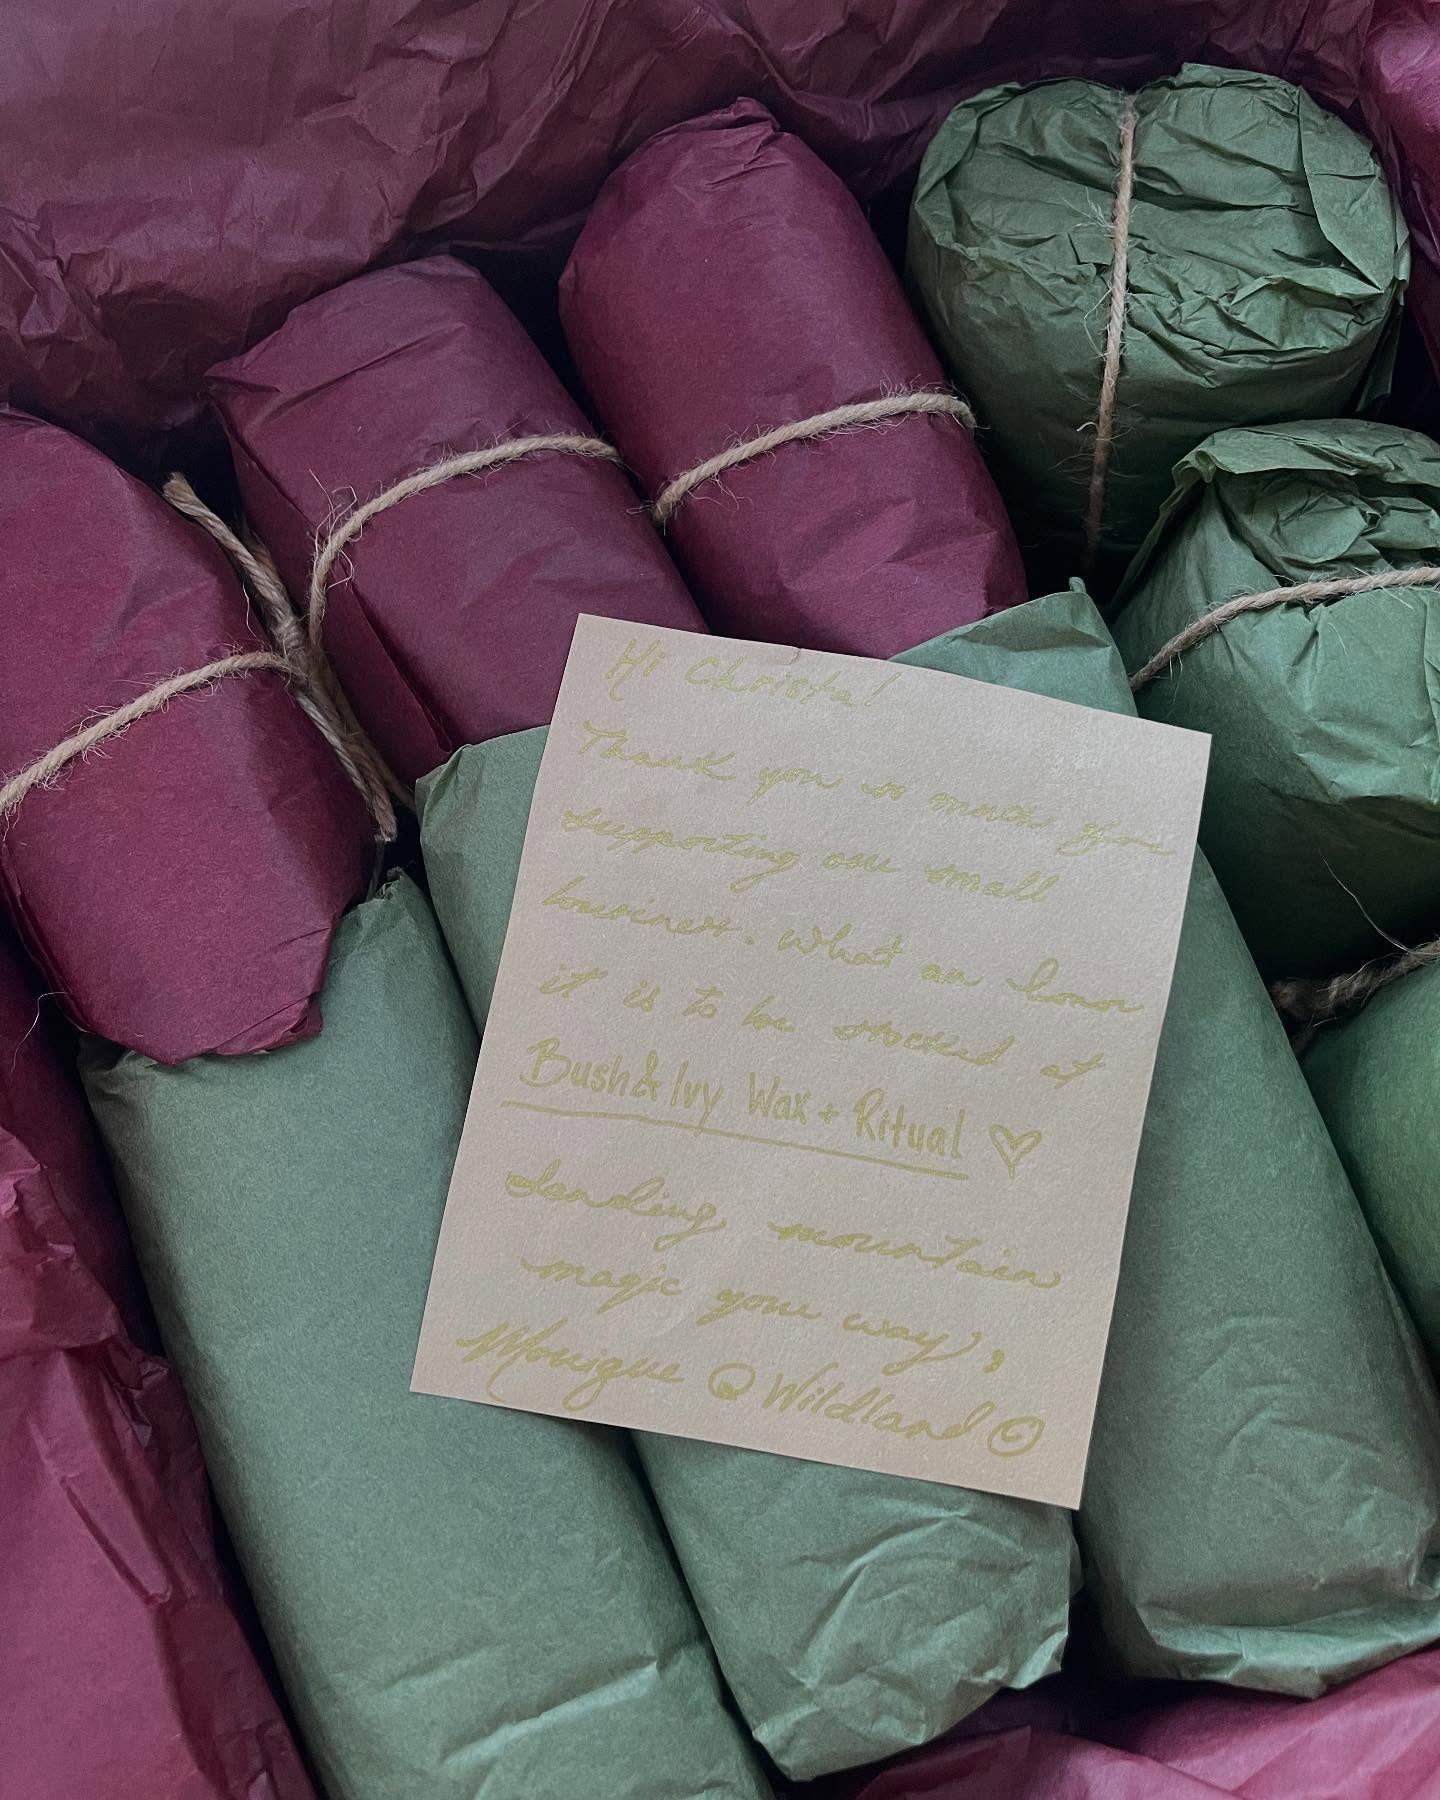 Hi Christal
Thank you so much for
supporting our small
business. What an honor
it is to be stocked at
Bush & Ivy Wax + Ritual ♡
Sending mountain
magic your way,
Monique @ Wildland ☺